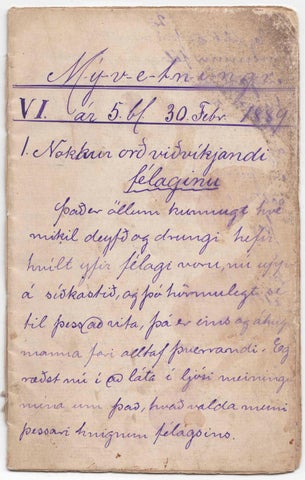 M-ý-v-e-t-n-i-n-g-u-r.
VI. ár 5. bl. 30. Febr. 1889
1. Nokkur orð viðvíkjandi
félaginu
Það er öllum kunnugt hve
mikil deyfð og drungi hefir
hvílt yfir félagi voru, nú upp
á síðkastið, og þó hörmulegt sé
til þess að vita, þá er eins og áhugi
manna fari alltaf þverrandi. Eg
ræðst nú í að láta í ljósi meiningu
mína um það, hvað valda muni
þessari hnignun félagsins.